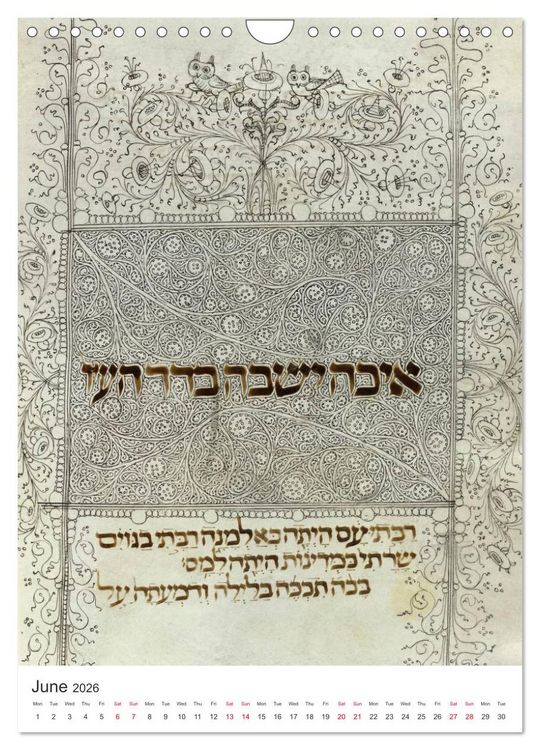 איכה ישבה בדד העיר
רבתי עם היתה כאלמנה רבתי בגוים
שרתי במדינות היתה למס
בכה תבכה בלילה ודמעתה על
June 2026
Mon Tue Wed Thu Fri Sat Sun Mon Tue Wed Thu Fri Sat Sun Mon Tue Wed Thu Fri Sat Sun Mon Tue Wed Thu Fri Sat Sun Mon Tue
1 2 3 4 5 6 7 8 9 10 11 12 13 14 15 16 17 18 19 20 21 22 23 24 25 26 27 28 29 30